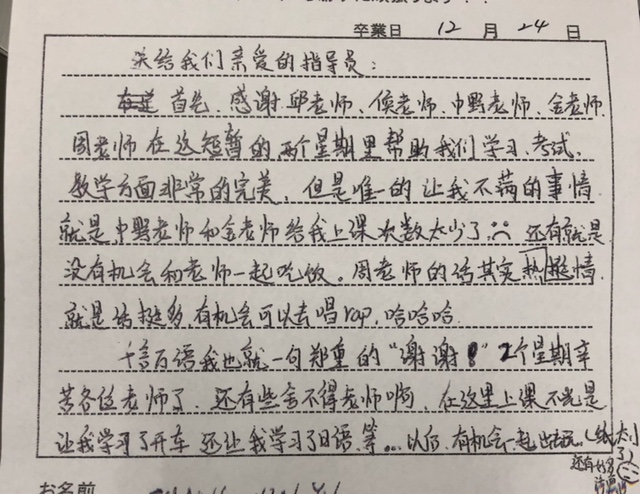 卒業日 12 月 24 日
关给我们亲爱的指导员:
首先、感谢邱老师、侯老师、中野老师、金老师
周老师在这短暂的两个星期里帮助我们学习、考试、
教学方面非常的完美、但是唯一的让我不满的事情
就是中野老师和金老师给我上课次数太少了 还有就是
没有机会和老师一起吃饭。周老师的话其实挺热情
就是话挺多,有机会可以去唱rap,哈哈哈
千言万语我也就一句郑重的“谢谢!”2个星期辛
苦各位老师了、还有些舍不得老师啊、在这里上课不光是
让我学习了开车 还让我学习了日语、等... 以后、有机会一起出去玩、(纸太小
了)
还有
お名前